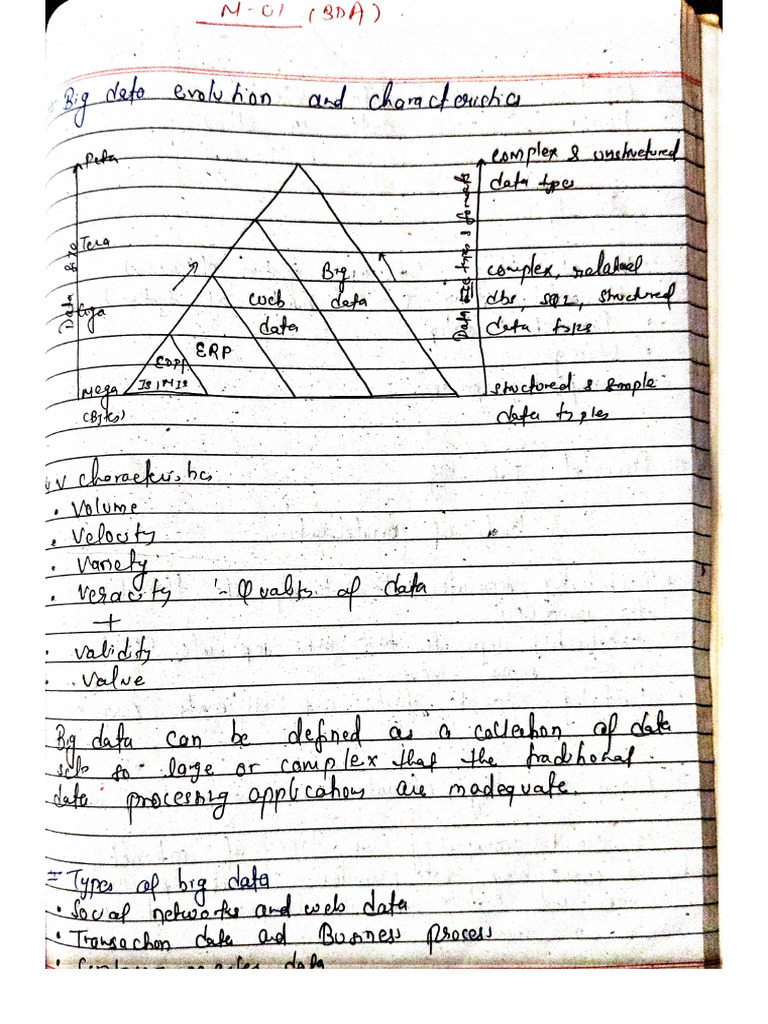 M-01 (BDA)
Big data evolution and characteristics
Peta
Tera
Giga
Mega
(Bytes)
Data size
EDP,
IS, MIS
ERP
web
data
Big
data
Data types & formats
complex & unstructured
data types
complex, relational
dbs, SQL, structured
data
structured & simple
data types
4V characteristics
• Volume
• Velocity
• Variety
• Veracity :- Quality of data
+
• Validity
• Value
Big data can be defined as a collection of data
sets so large or complex that the traditional
data processing applications are inadequate.
= Types of big data
• Social networks and web data
• Transaction data and Business process
• data